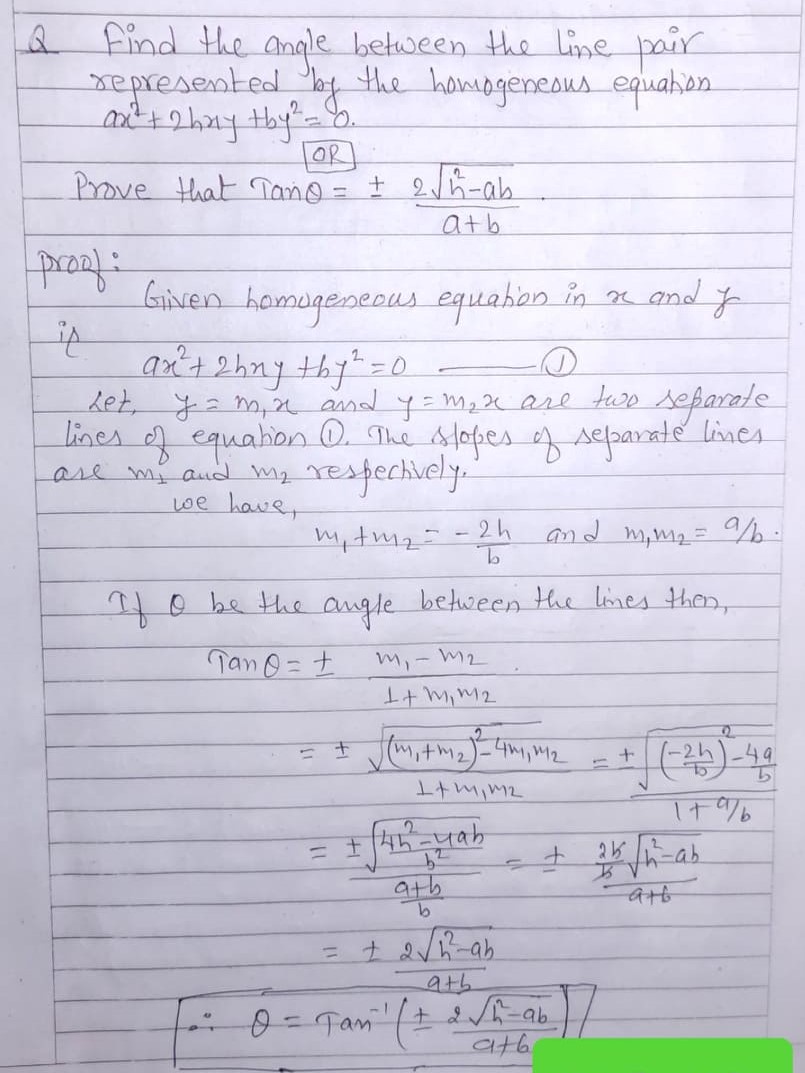 Q Find the angle between the line pair
represented by the homogeneous equation
ax² + 2hxy + by² = 0.
OR
Prove that Tanθ = ± 2√(h²-ab) / (a+b).
proof:
Given homogeneous equation in x and y
is
ax² + 2hxy + by² = 0 ——— ①
Let, y = m₁x and y = m₂x are two separate
lines of equation ①. The slopes of separate lines
are m₁ and m₂ respectively.
we have,
m₁ + m₂ = - 2h/b and m₁m₂ = a/b.
If θ be the angle between the lines then,
Tanθ = ± (m₁ - m₂) / (1 + m₁m₂).
= ± √((m₁+m₂)² - 4m₁m₂) / (1 + m₁m₂) = ± √((-2h/b)² - 4a/b) / (1 + a/b)
= ± √((4h² - 4ab)/b²) / ((a+b)/b) = ± (2b/b √(h²-ab)) / (a+b)
= ± 2√(h²-ab) / (a+b)
∴ θ = Tan⁻¹(± 2√(h²-ab) / (a+b))